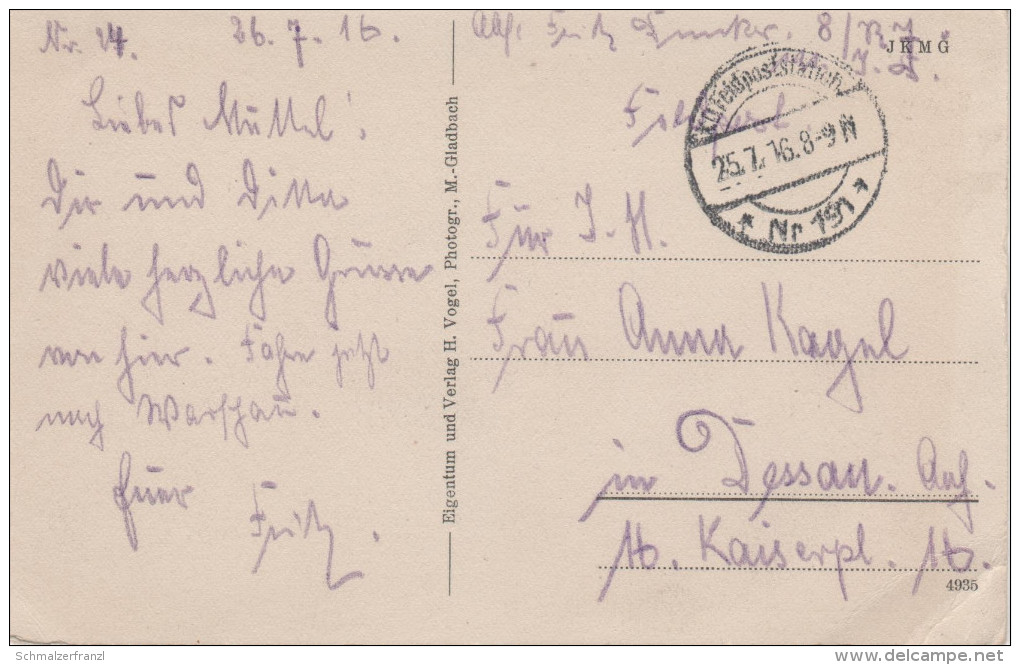 Nr. 24. 26.7.16.
Liebes Muttel!
Dir und Ditta
viele herzliche Grüsse
von hier. Fahre jetzt
nach Warschau.
Euer
Fritz.
Eigentum und Verlag H. Vogel, Photogr., M.-Gladbach
Abs: Fritz 8/
JKMG
Feldpost.
K.D. Feldpoststation
25.7.16.8-9N
* Nr 191 *
Für I. H.
Frau Anna Kagel
in Dessau. Anh.
16. Kaiserpl. 16.
4935
Schmalzerfranzl
www.delcampe.net